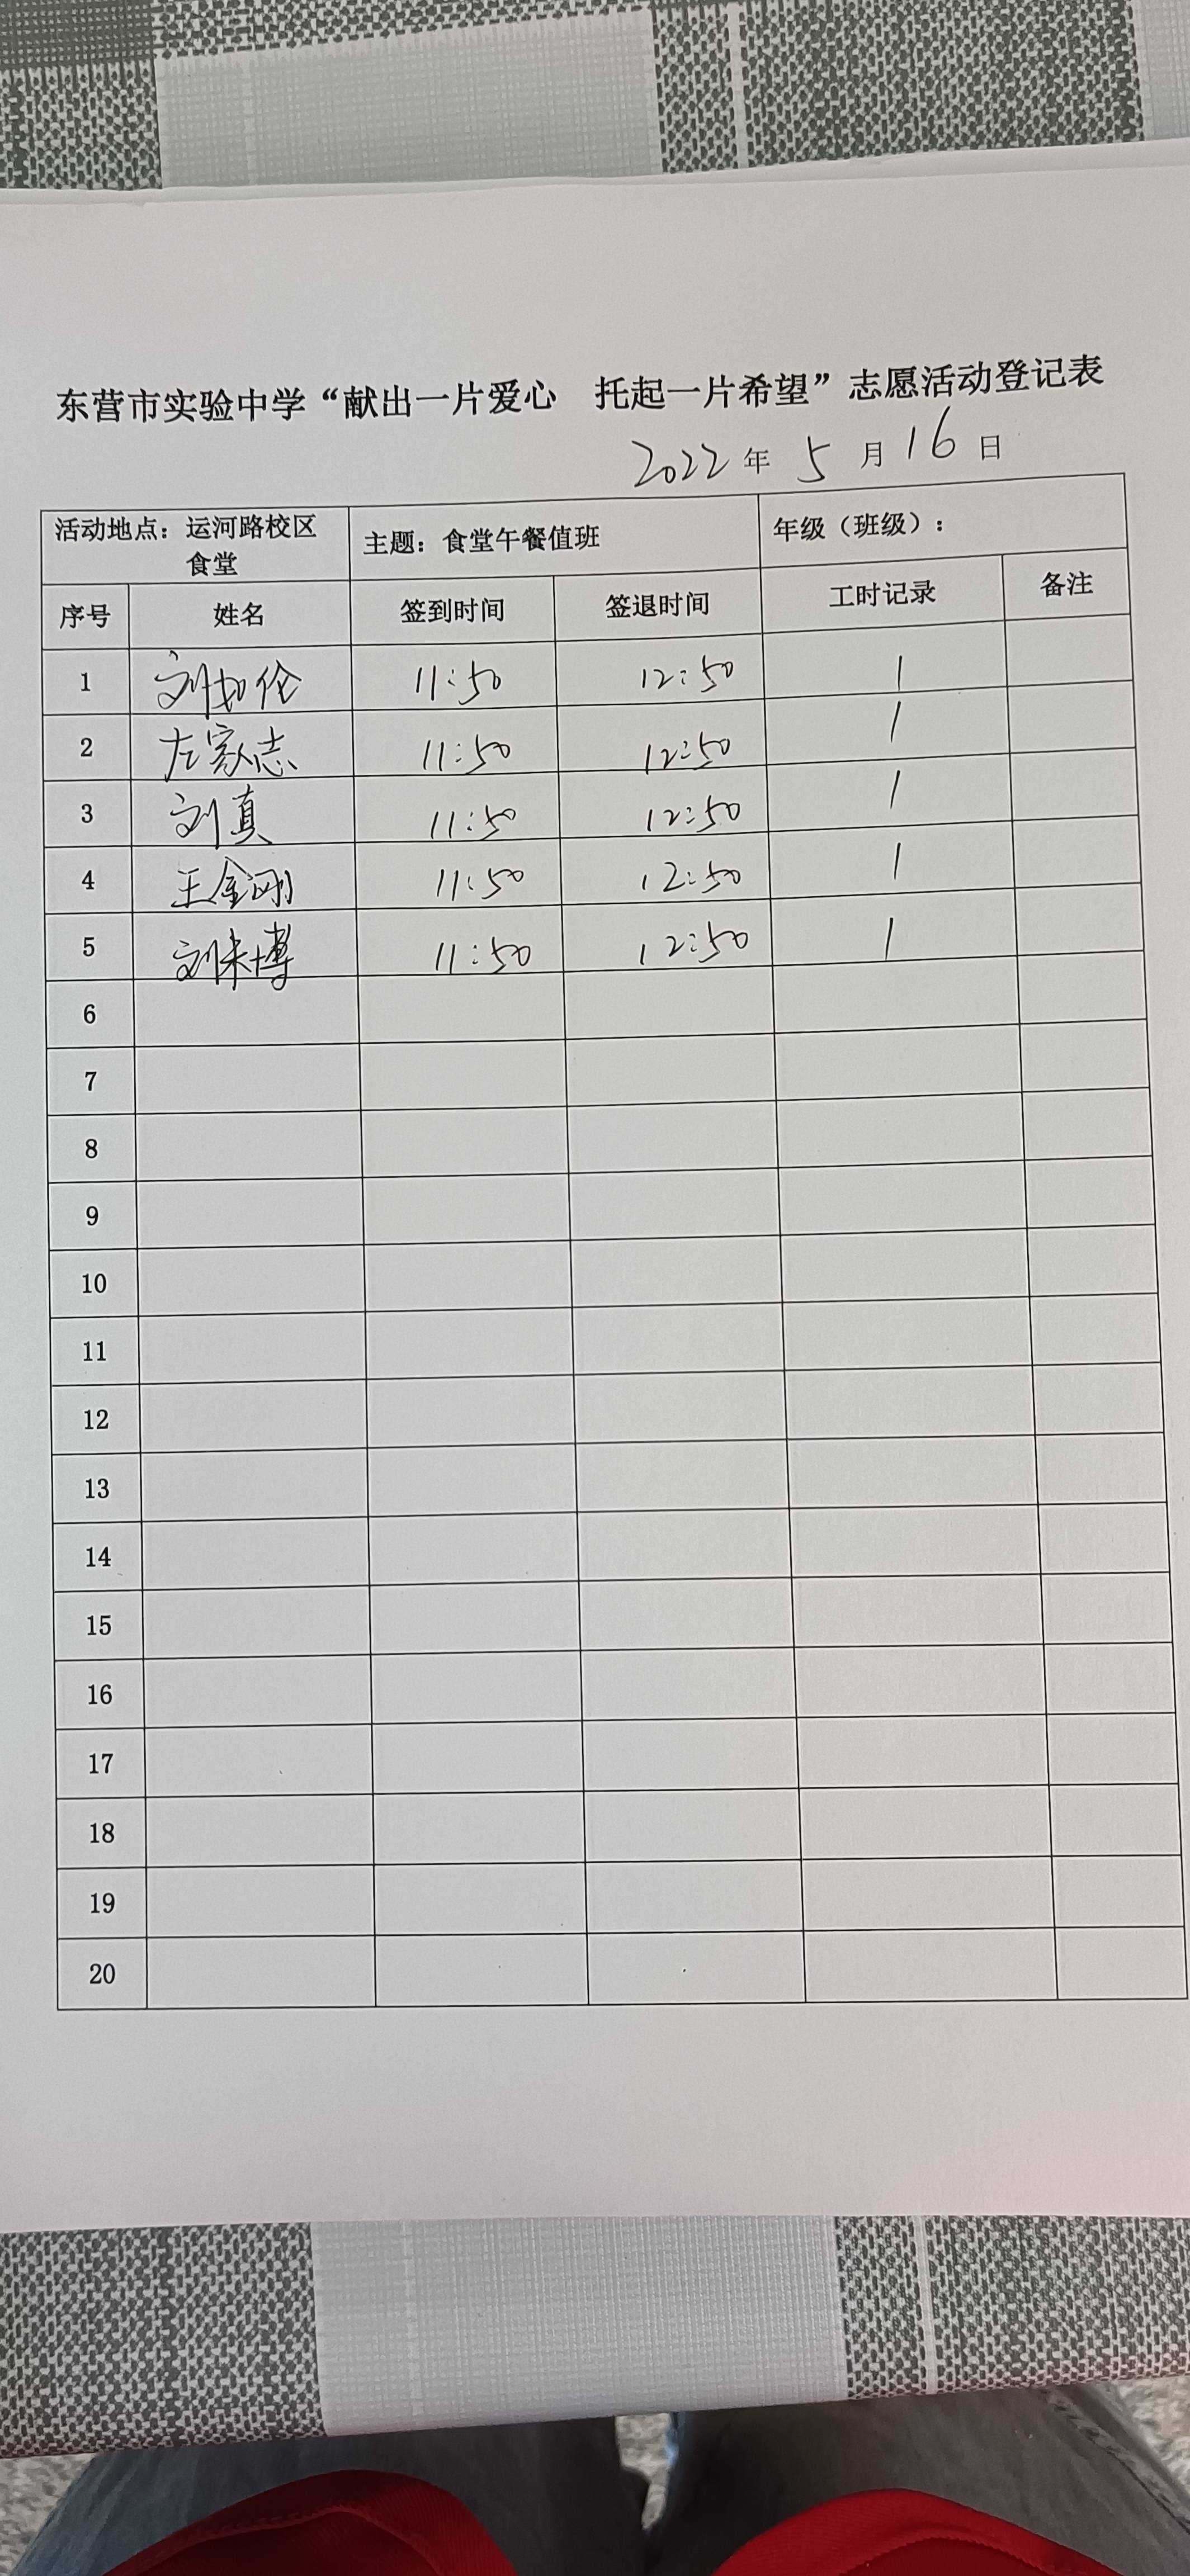 东营市实验中学“献出一片爱心 托起一片希望”志愿活动登记表
2022年 5月16日
活动地点：运河路校区食堂 主题：食堂午餐值班 年级（班级）：
序号 姓名 签到时间 签退时间 工时记录 备注
1 刘如伦 11:50 12:50 1
2 左家志 11:50 12:50 1
3 刘真 11:50 12:50 1
4 王金刚 11:50 12:50 1
5 刘来博 11:50 12:50 1
6
7
8
9
10
11
12
13
14
15
16
17
18
19
20